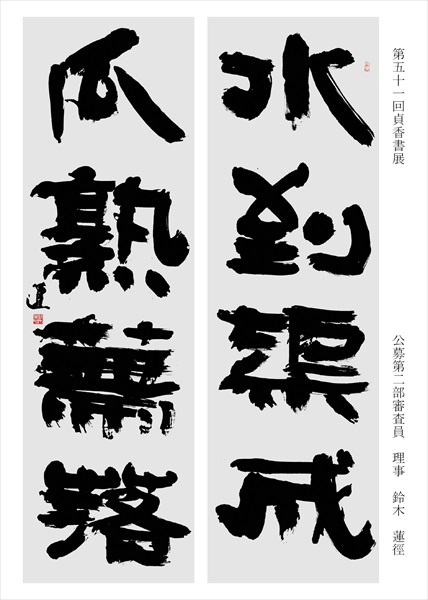 第五十一回貞香書展
公募第二部審査員 理事 鈴木 蓮徑
水到渠成
瓜熟蔕落